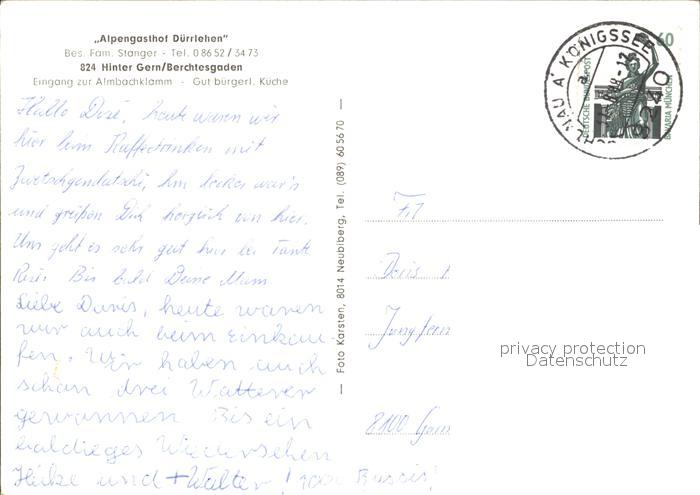 „Alpengasthof Dürrlehen"
Bes. Fam. Stanger - Tel. 0 86 52 / 34 73
824 Hinter Gern/Berchtesgaden
Eingang zur Almbachklamm · Gut bürgerl. Küche
Hallo Dori, heute waren wir
hier beim Kaffeetrinken mit
Zwetschgendatschi, hm lecker war's
und grüßen Dich herzlich von hier.
Uns geht es sehr gut hier bei Tante
Resi. Bis bald Deine Mam
Liebe Doris, heute waren
wir auch beim Einkau-
fen. Wir haben auch
schon drei Watterer
gewonnen. Bis ein
baldieges Wiedersehen
Heike und + Walter! 1000 Bussis!
— Foto Karsten, 8014 Neubiberg, Tel. (089) 60 56 70 —
SCHÖNAU A. KÖNIGSSEE
8240
60
DEUTSCHE BUNDESPOST
BAVARIA MÜNCHEN
Doris
Jungfern
8100
privacy protection
Datenschutz